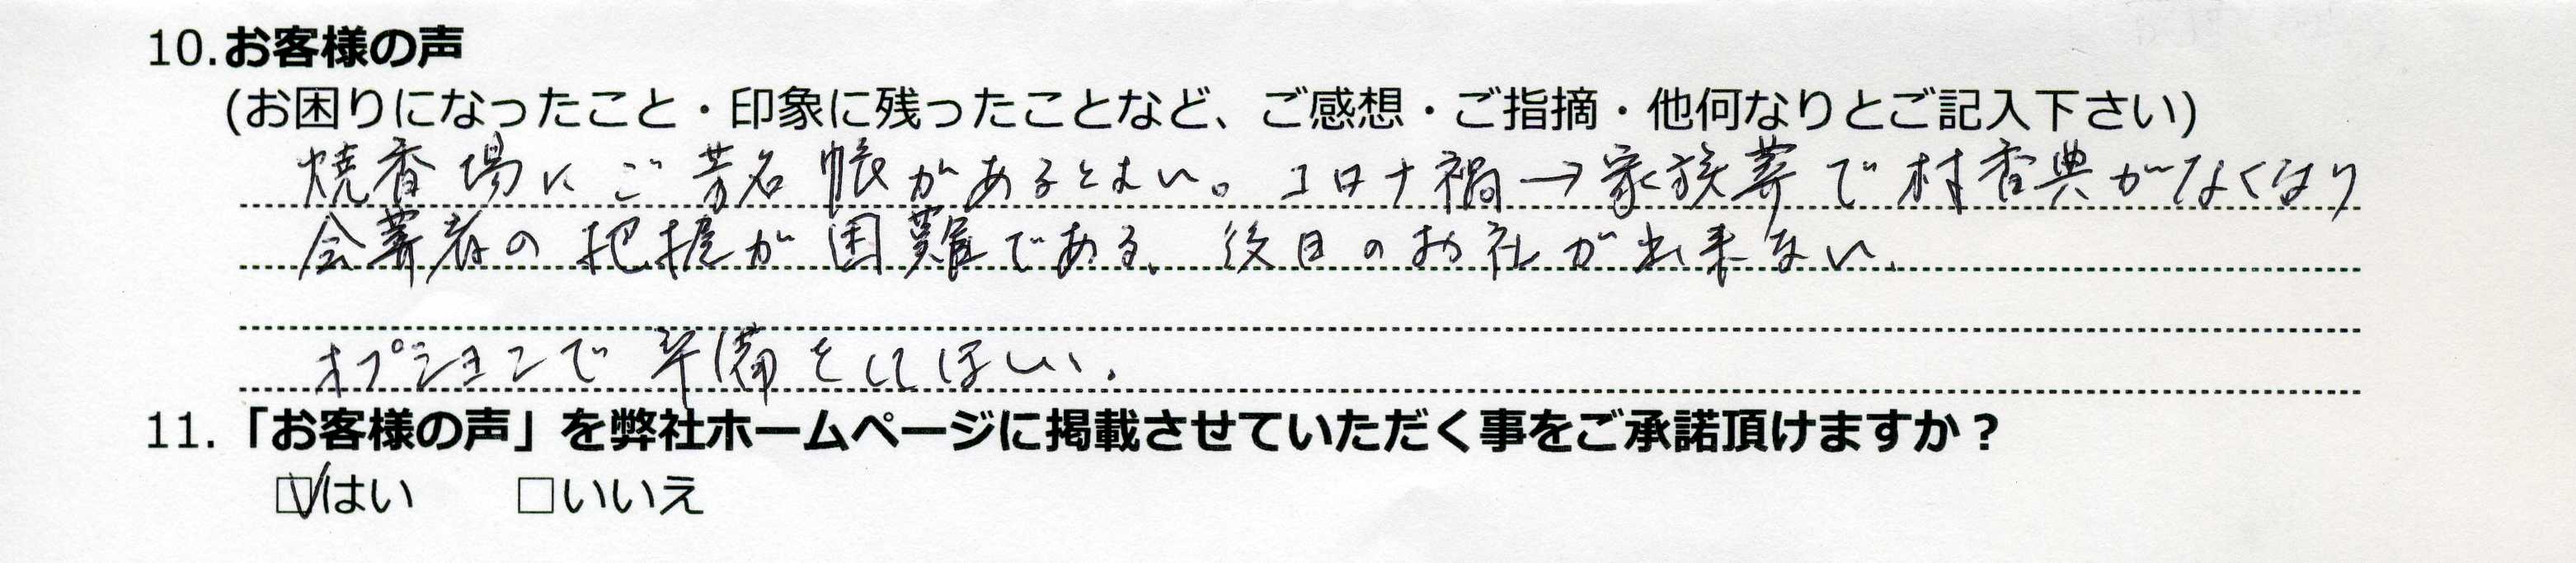 10.お客様の声
(お困りになったこと・印象に残ったことなど、ご感想・ご指摘・他何なりとご記入下さい)
焼香場にご芳名帳があるとよい。コロナ禍→家族葬で村香典がなくなり
会葬者の把握が困難である、後日のお礼が出来ない、
オプションで準備をしてほしい。
11.「お客様の声」を弊社ホームページに掲載させていただく事をご承諾頂けますか？
☑はい □いいえ